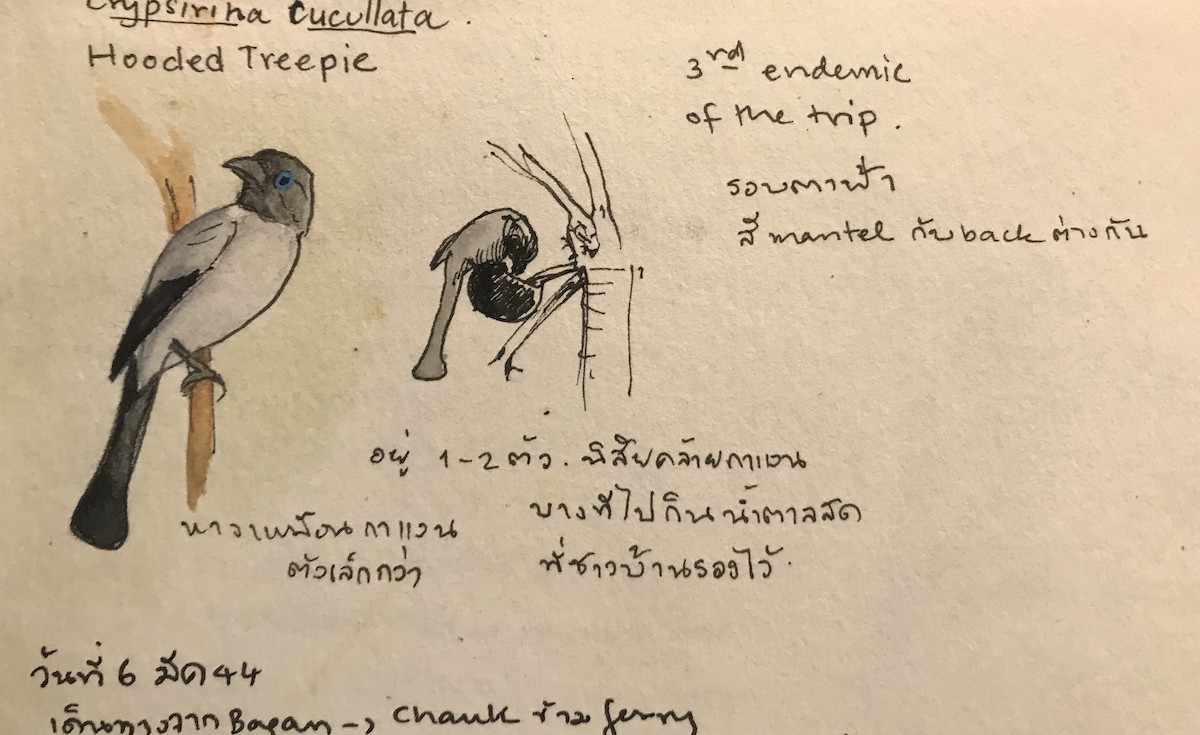 Crypsirina Cucullata.
Hooded Treepie
3rd endemic
of the trip.
รอบตาฟ้า
สี mantel กับ back ต่างกัน
อยู่ 1-2 ตัว. นิสัยคล้ายกาแวน
บางทีไปกินน้ำตาลสด
ที่ชาวบ้านรองไว้.
หางเหมือนกาแวน
ตัวเล็กกว่า
วันที่ 6 มีค 44
เดินทางจาก Bagan -> Chauk ข้าม ferry